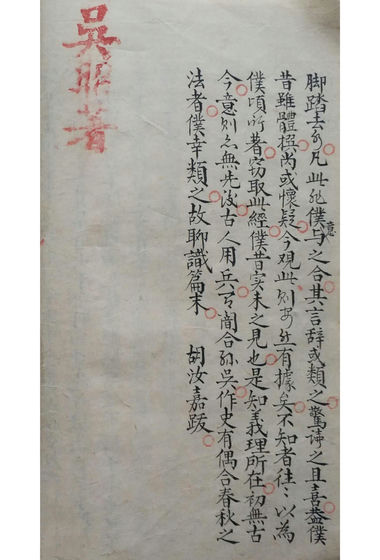 脚踏去凡此僕与意之合其言辭或類之驚之且喜葢僕
昔雖體撰尚或懷疑今观此則有據矣不知者往〻以為
僕頃所著窃取此經僕昔实未之見也是知義理所在初無古
今意則亦無先後古人用兵有闇合孫吳作史有偶合春秋之
法者僕幸類之故聊識篇末　胡汝嘉跋
吳著